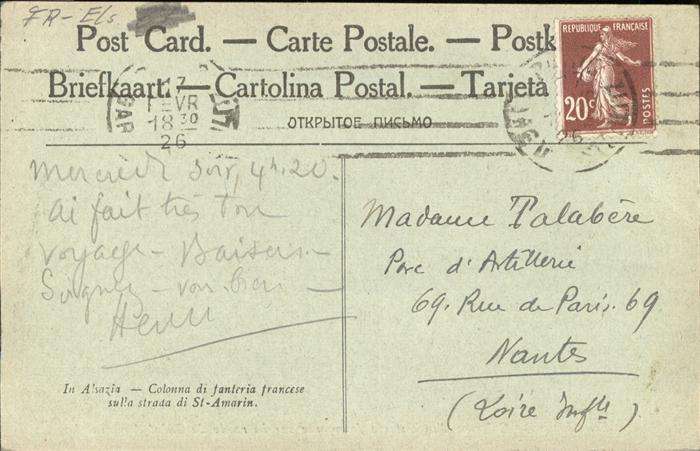 FR-Els
Post Card. — Carte Postale. — Postk
Briefkaart. — Cartolina Postal. — Tarjeta
ОТКРЫТОЕ ПИСЬМО
REPUBLIQUE FRANÇAISE
20c
POSTES
GAR
17
FEVR
18 30
26
Mercredi Soir, 4h.20.
ai fait très bon
voyage - Baisers -
Soignez - vous bien -
Henri
Madame Talabère
Parc d'Artillerie
69. Rue de Paris. 69
Nantes
(Loire Infre)
In Alsazia — Colonna di fanteria francese
sulla strada di St-Amarin.